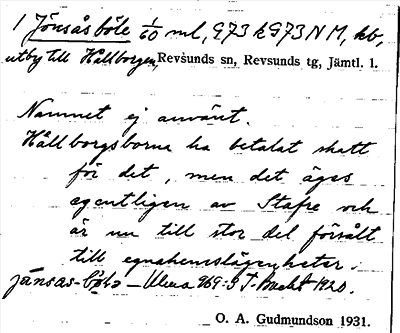 1 Jönsåsböle 1/60 ml, G73 k G73 N M, kb,
utby till Hållborgen, Revsunds sn, Revsunds tg, Jämtl. l.
Namnet ej använt.
Hållborgsborna ha betalat skatt
för det, men det äges
egentligen av Stafre och
är nu till stor del försålt
till egnahemslägenheter.
jánsas- — Ulma 969:3 T. 1920.
O. A. Gudmundson 1931.